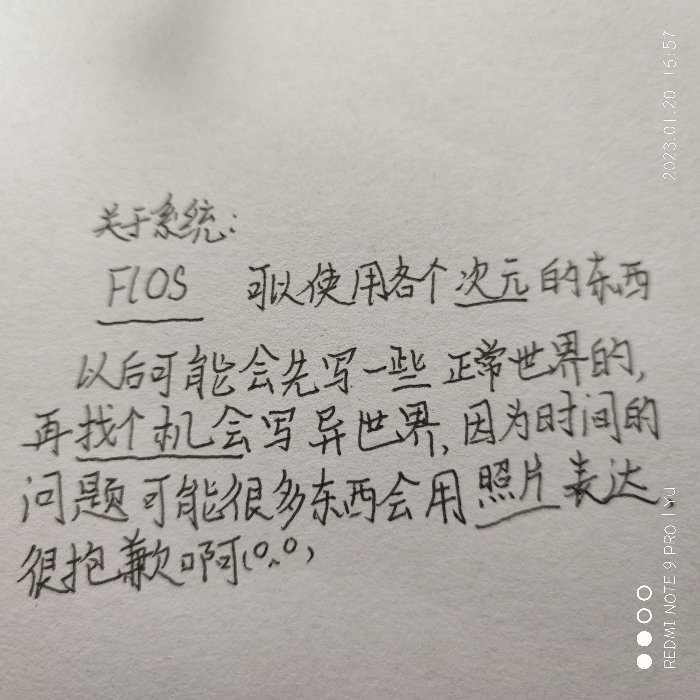 关于系统:
FIOS 可以使用各个次元的东西
以后可能会先写一些正常世界的,
再找个机会写异世界,因为时间的
问题可能很多东西会用照片表达、
很抱歉啊(o.o)
2023.01.20 16:57
REDMI NOTE 9 PRO | Yu